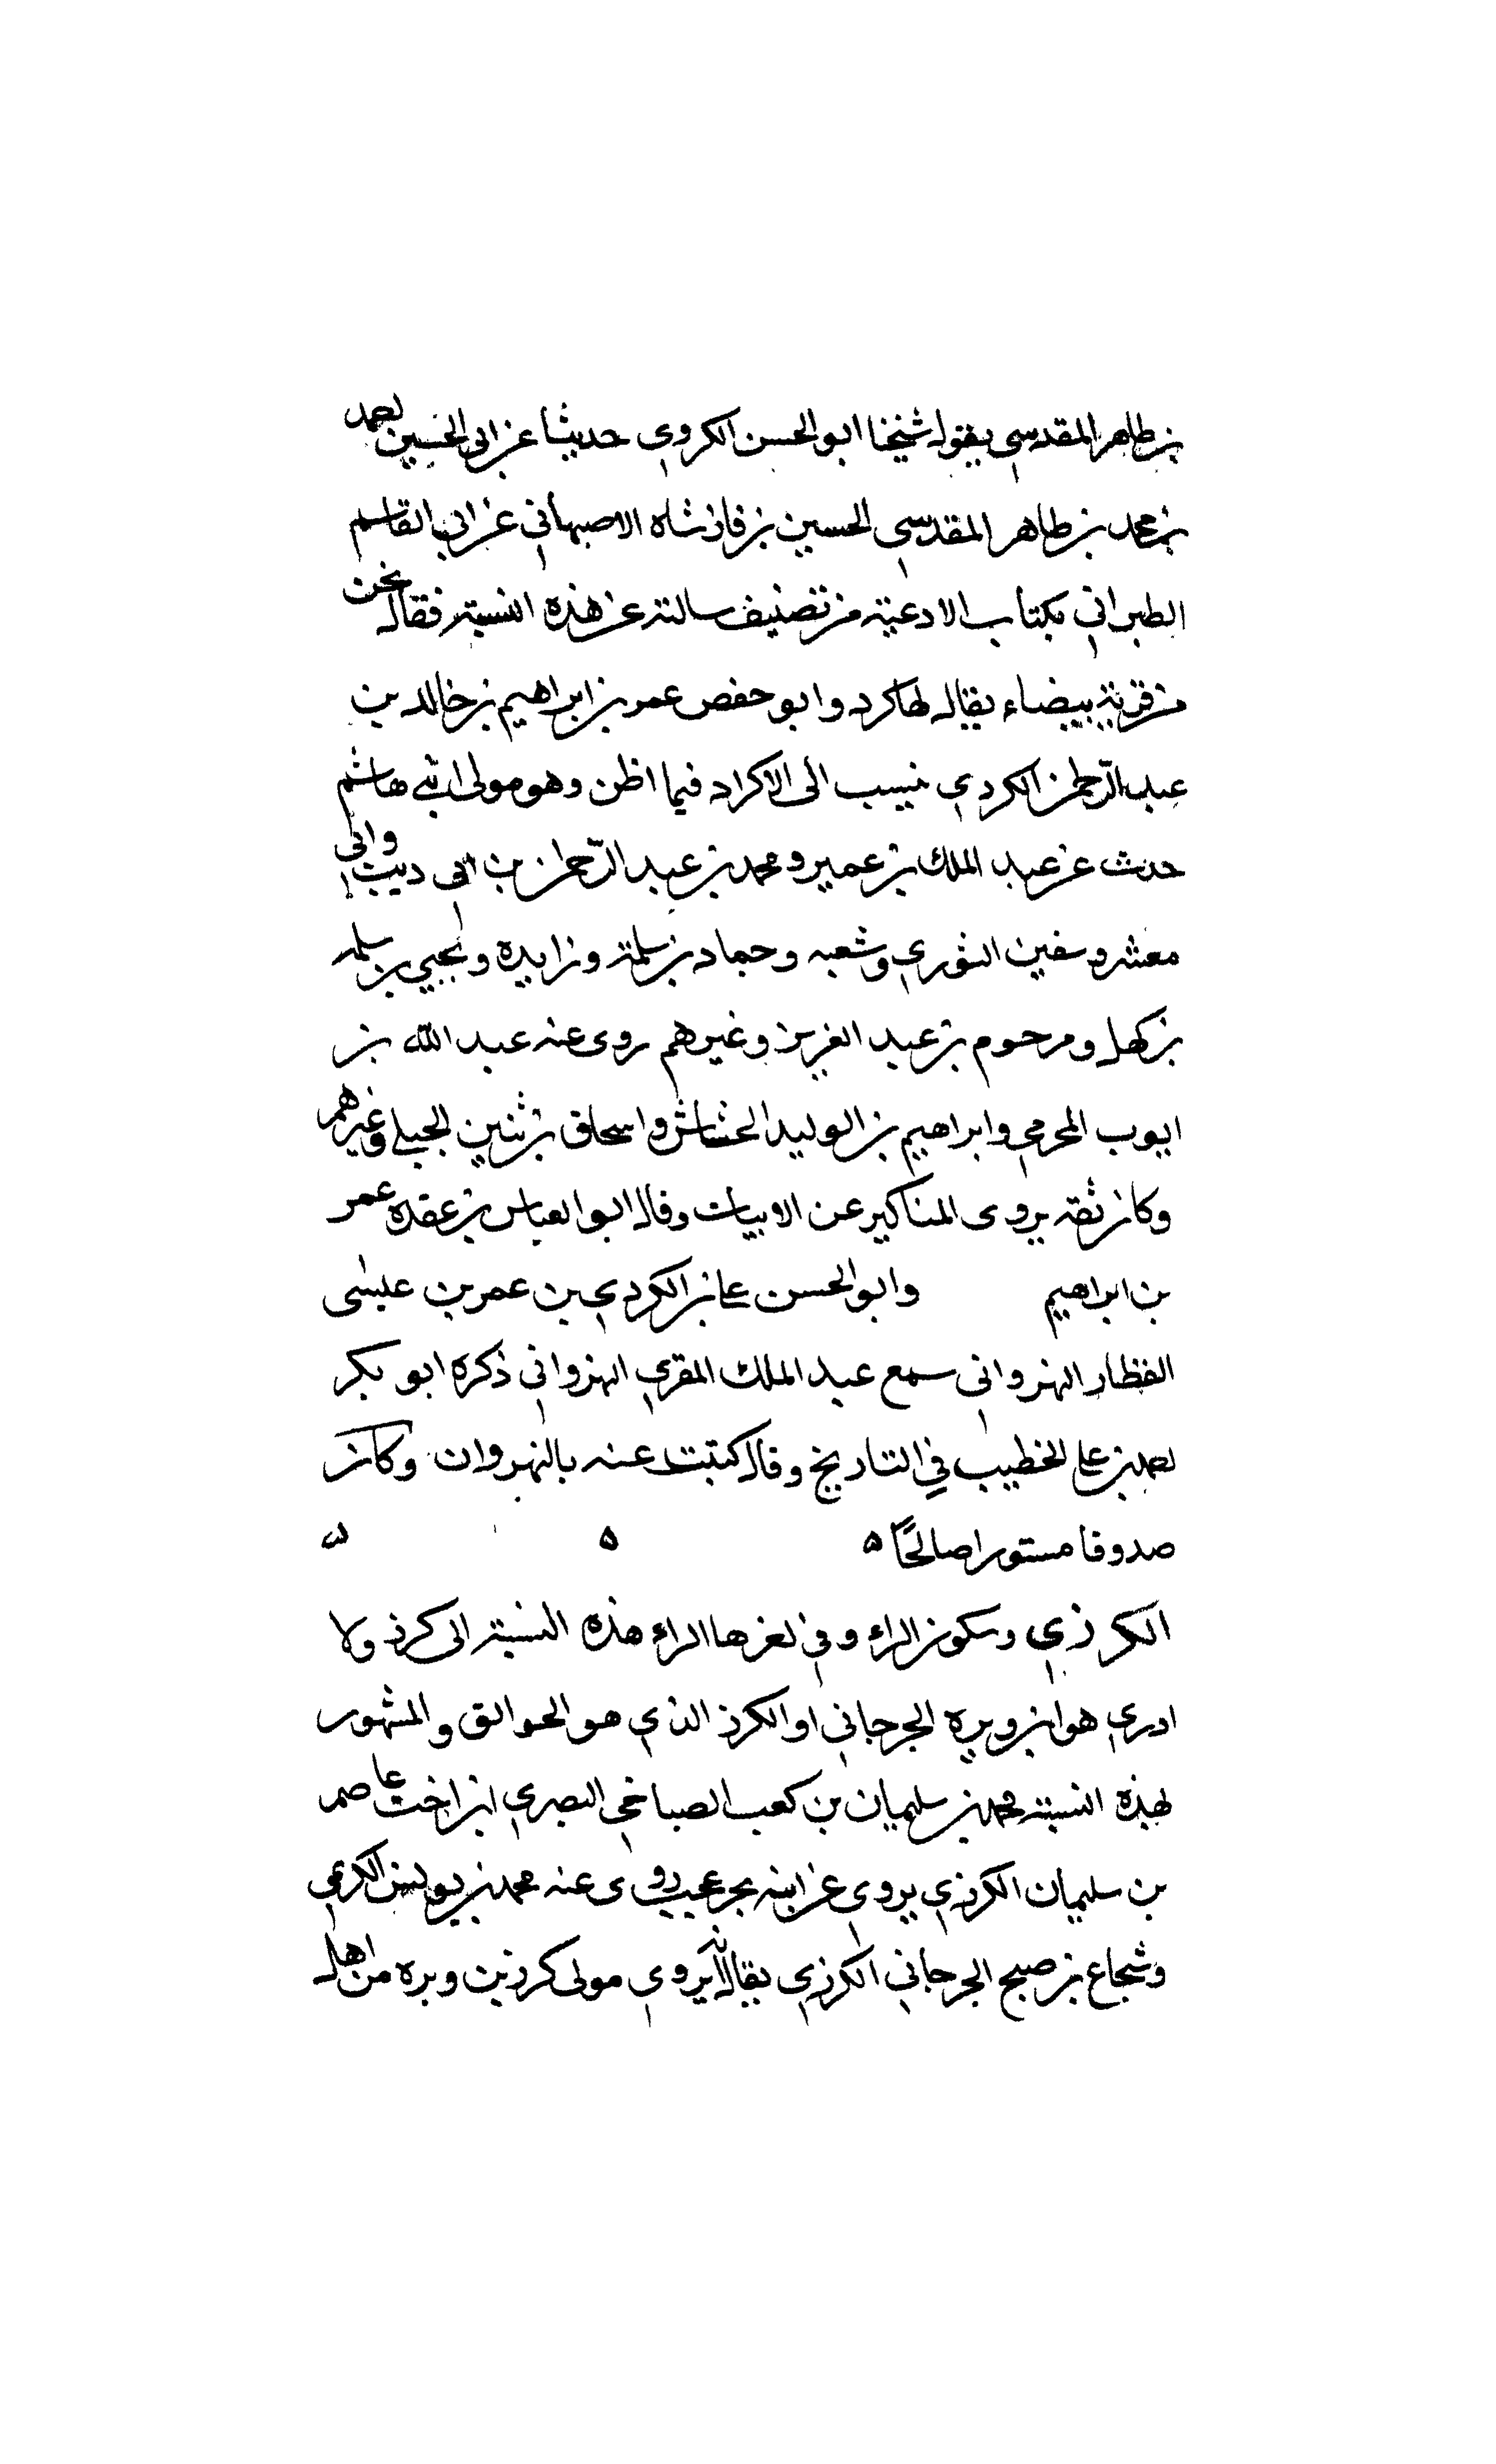 بن طاهر المقدسي يقول شيخنا ابو الحسن الكروي حديثا عن ابي الحسين احمد
بن محمد بن طاهر المقدسي الحسين بن فاذشاه الاصبهاني عن ابي القاسم
الطبراني بكتاب الادعية من تصنيف سالته عن هذه النسبة فقال نحن
من قرية بيضاء يقال لها كرد وابو حفص عمر بن ابراهيم بن خالد بن
عبد الرحمن الكردي ينسب الى الاكراد فيما اظن وهو مولى ابني هاشم
حدث عن عبد الملك بن عمير ومحمد بن عبد الرحمن بن ابي ديب وابي
معشر وسفين الثوري وشعبه وحماد بن سلمة وزايده ويحيي بن سلمه
بن كهل ومرحوم بن عبد العزيز وغيرهم روى عنه عبد الله بن
ايوب المخرمي وابراهيم بن الوليد الحشاش واسحاق بن ثنين الجبلي وغيرهم
وكان ثقه يروى المناكير عن الاثبات وقال ابو العباس بن عقده عمر
بن ابراهيم وابو الحسن علي بن الكردي بن عمر بن عيسى
القطار النهرواني سمع عبد الملك المقري النهرواني ذكره ابو بكر
احمد بن علي الخطيب في التاريخ وقال كتبت عنه بالنهروان وكان
صدوقا مستورا صالحًا ه ه
الكرذي وسكون الراء وفي اخرها الراء هذه النسبة الى كرذ ولا
ادري هو ابن وبره الجرجاني او الكرذ الذي هو الجوالق والمشهور
بهذه النسبة محمد بن سليمان بن كعب الصباحي البصري ابن اخت عاصم
بن سليمان الكرذي يروي عن ابيه بحر عجيب روى عنه محمد بن يونس الكريمي
وشجاع بن صبيح الجرجاني الكرذي يقال انه يروي مولى كرذ بن وبره من اهل